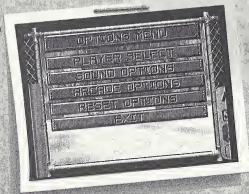 OPTIONS MENU
PLAYER SELECT
SOUND OPTIONS
ARCADE OPTIONS
RESET OPTIONS
EXIT